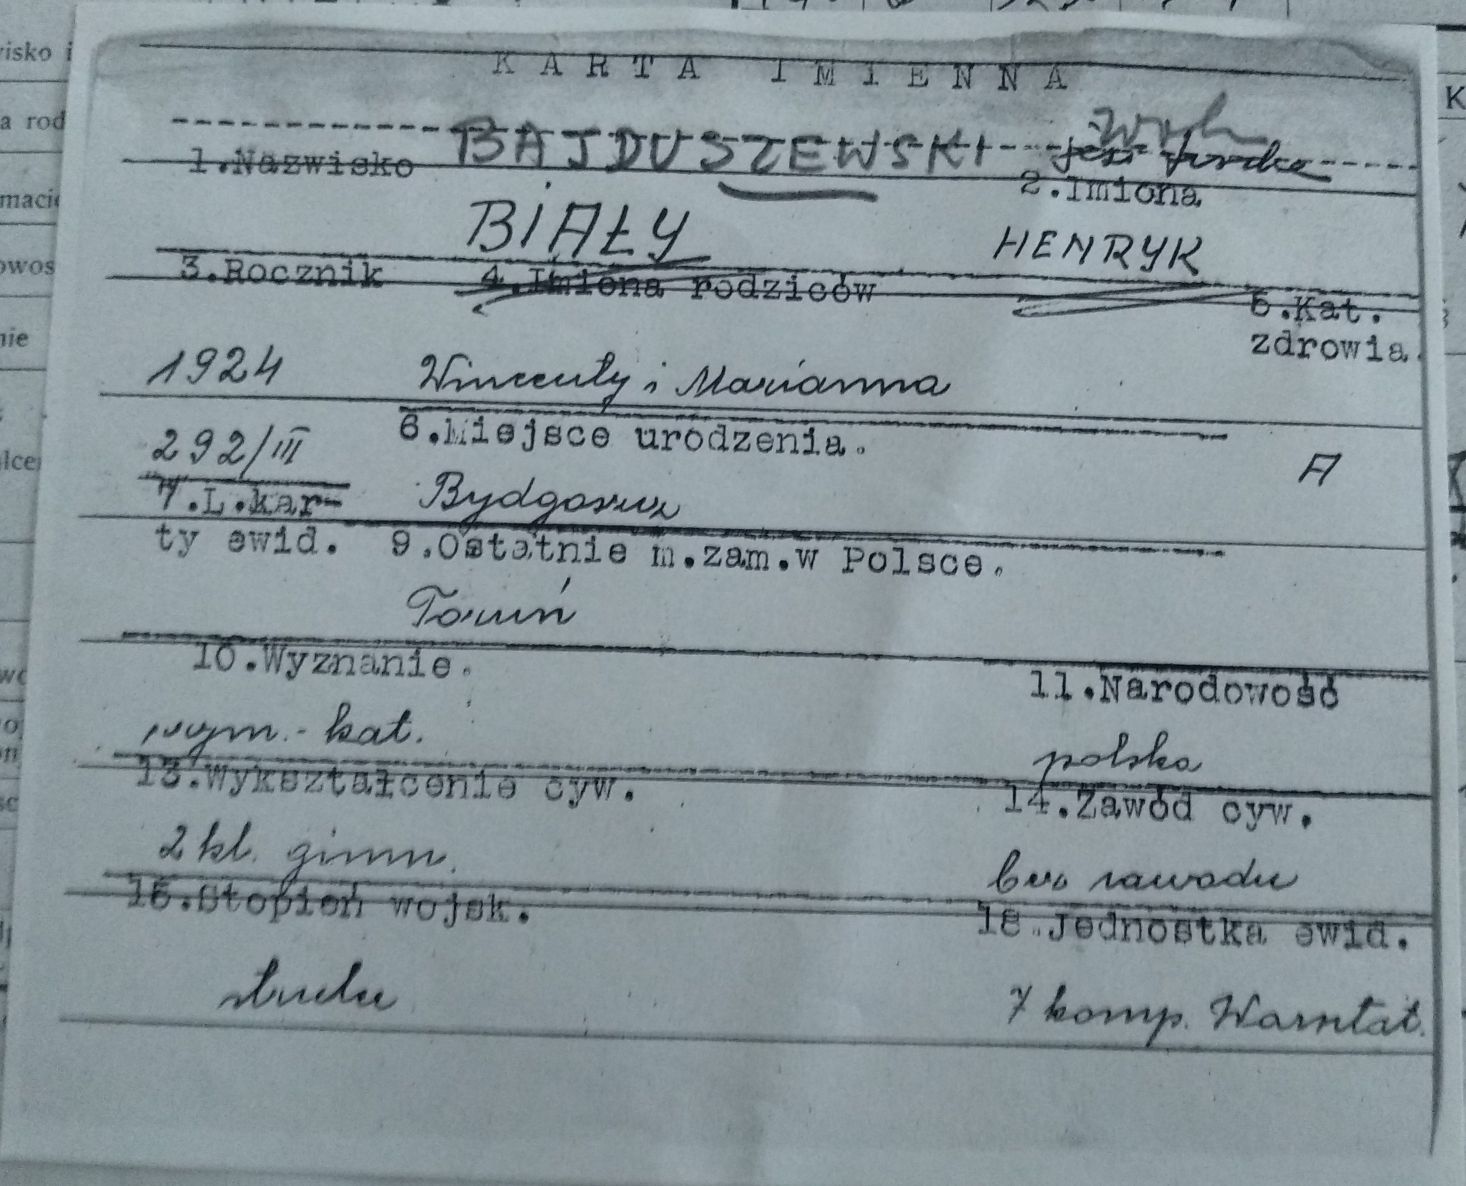 KARTA IMIENNA
BAJDUSZEWSKI
1.Nazwisko
2.Imiona
BIAŁY HENRYK
3.Rocznik 4.Imiona rodziców
5.Kat.
zdrowia.
1924 Wincenty i Marianna
292/III 6.Miejsce urodzenia.
A
7.L.kar-
Bydgoszcz
ty ewid. 9.Ostatnie m.zam.w Polsce.
Toruń
10.Wyznanie. 11.Narodowość
rzym.-kat. polska
13.Wykształcenie cyw. 14.Zawód cyw.
2 kl. gimn. bez zawodu
16.Stopień wojsk. 18.Jednostka ewid.
7 komp. Warsztat.